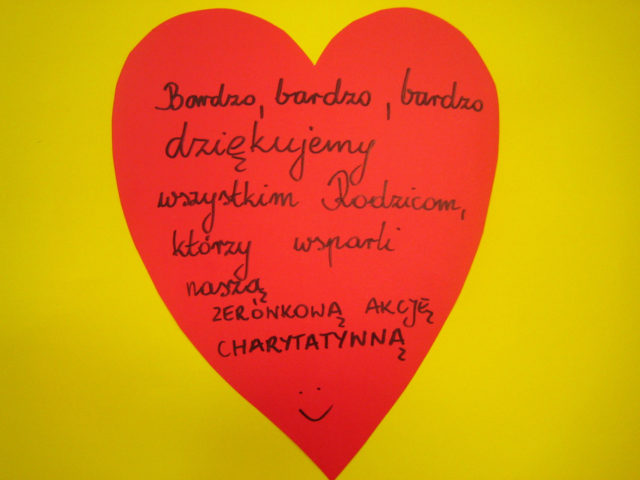 Bardzo, bardzo, bardzo
dziękujemy
wszystkim Rodzicom,
którzy wsparli
naszą
ZERÓNKOWĄ AKCJĘ
CHARYTATYWNĄ